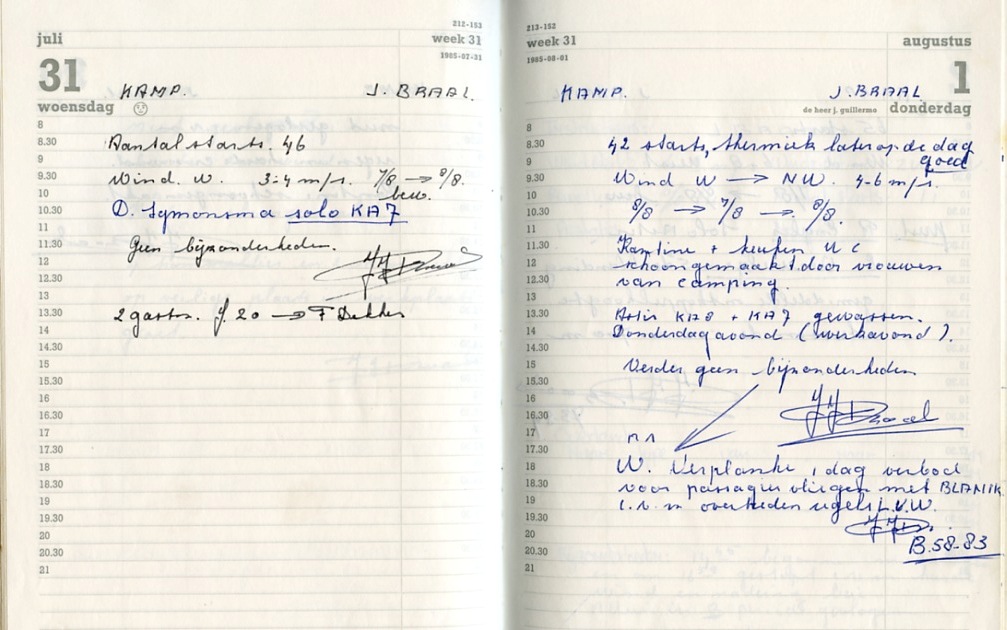 212-153
juli
week 31
1985-07-31
31
woensdag
KAMP.
J. BRAAL.
8
8.30
Aantal starts. 46
9
9.30
Wind. W. 3:4 m/s. 7/8 → 8/8.
10
bew.
10.30
D. Symonsma solo KA7
11
11.30
Geen bijzonderheden.
12
12.30
13
13.30
2 gastv. f. 20 → F Dekker
14
14.30
15
15.30
16
16.30
17
17.30
18
18.30
19
19.30
20
20.30
21
213-152
week 31
augustus
1985-08-01
1
KAMP.
J. BRAAL
de heer j. guillermo
donderdag
8
8.30
42 starts, thermiek later op de dag
9
goed
9.30
Wind W → NW. 4-6 m/s.
10
10.30
8/8 → 7/8 → 8/8.
11
11.30
Kantine + keuken W C
12
schoongemaakt door vrouwen
12.30
van camping.
13
13.30
KA8 + KA7 gewassen.
14
Donderdagavond (werkavond).
14.30
15
Verder geen bijzonderheden
15.30
16
16.30
17
17.30
18
W. Verplanke 1 dag verbod
18.30
voor passagier vliegen met BLANIK
19
i.v.m overtreden regels L.V.W.
19.30
20
20.30
B.58-83
21